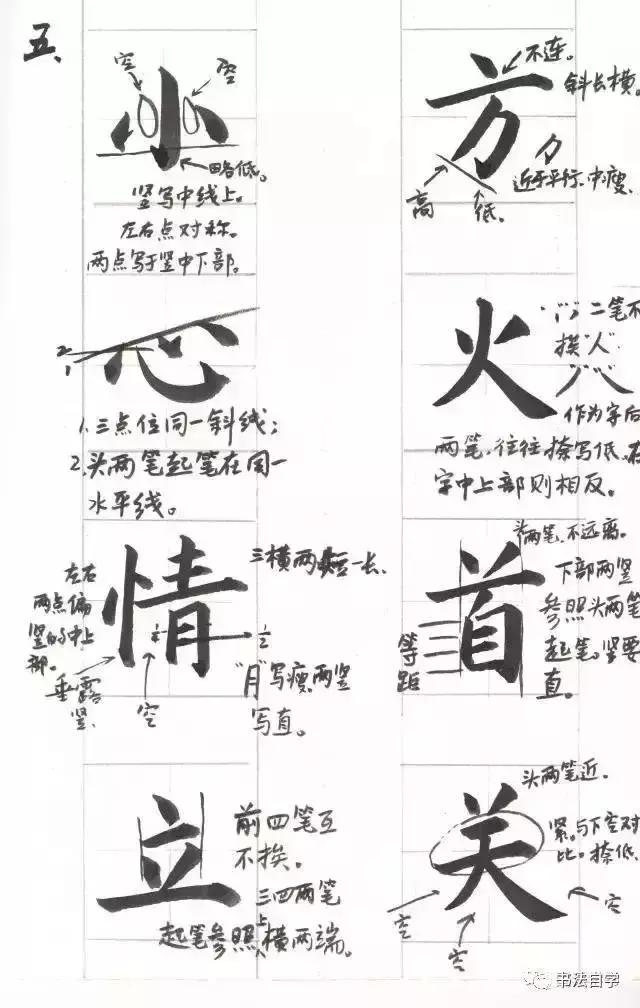 五、
小
空
空
略低。
竖写中线上。
左右点对称。
两点写于竖中下部。
方
不连。
斜长横。
近于平行、中瘦
高
低。
心
2
1
1.三点位同一斜线；
2.头两笔起笔在同一
水平线。
火
二笔不
挨“人”
作为字后
两笔，往往捺写低，在
字中上部则相反。
情
左右
两点偏
竖的中上
部。
垂露
竖
空
三横两短一长、
“月”写瘦，两竖
写直。
首
头两笔，不远离。
下部两竖
参照头两笔
起笔。竖要
直。
等
距
立
前四笔互
不挨。
三四两笔
起笔参照上横两端。
关
头两笔近．
紧，与下空对
比。捺低、
空
空
空
书法自学